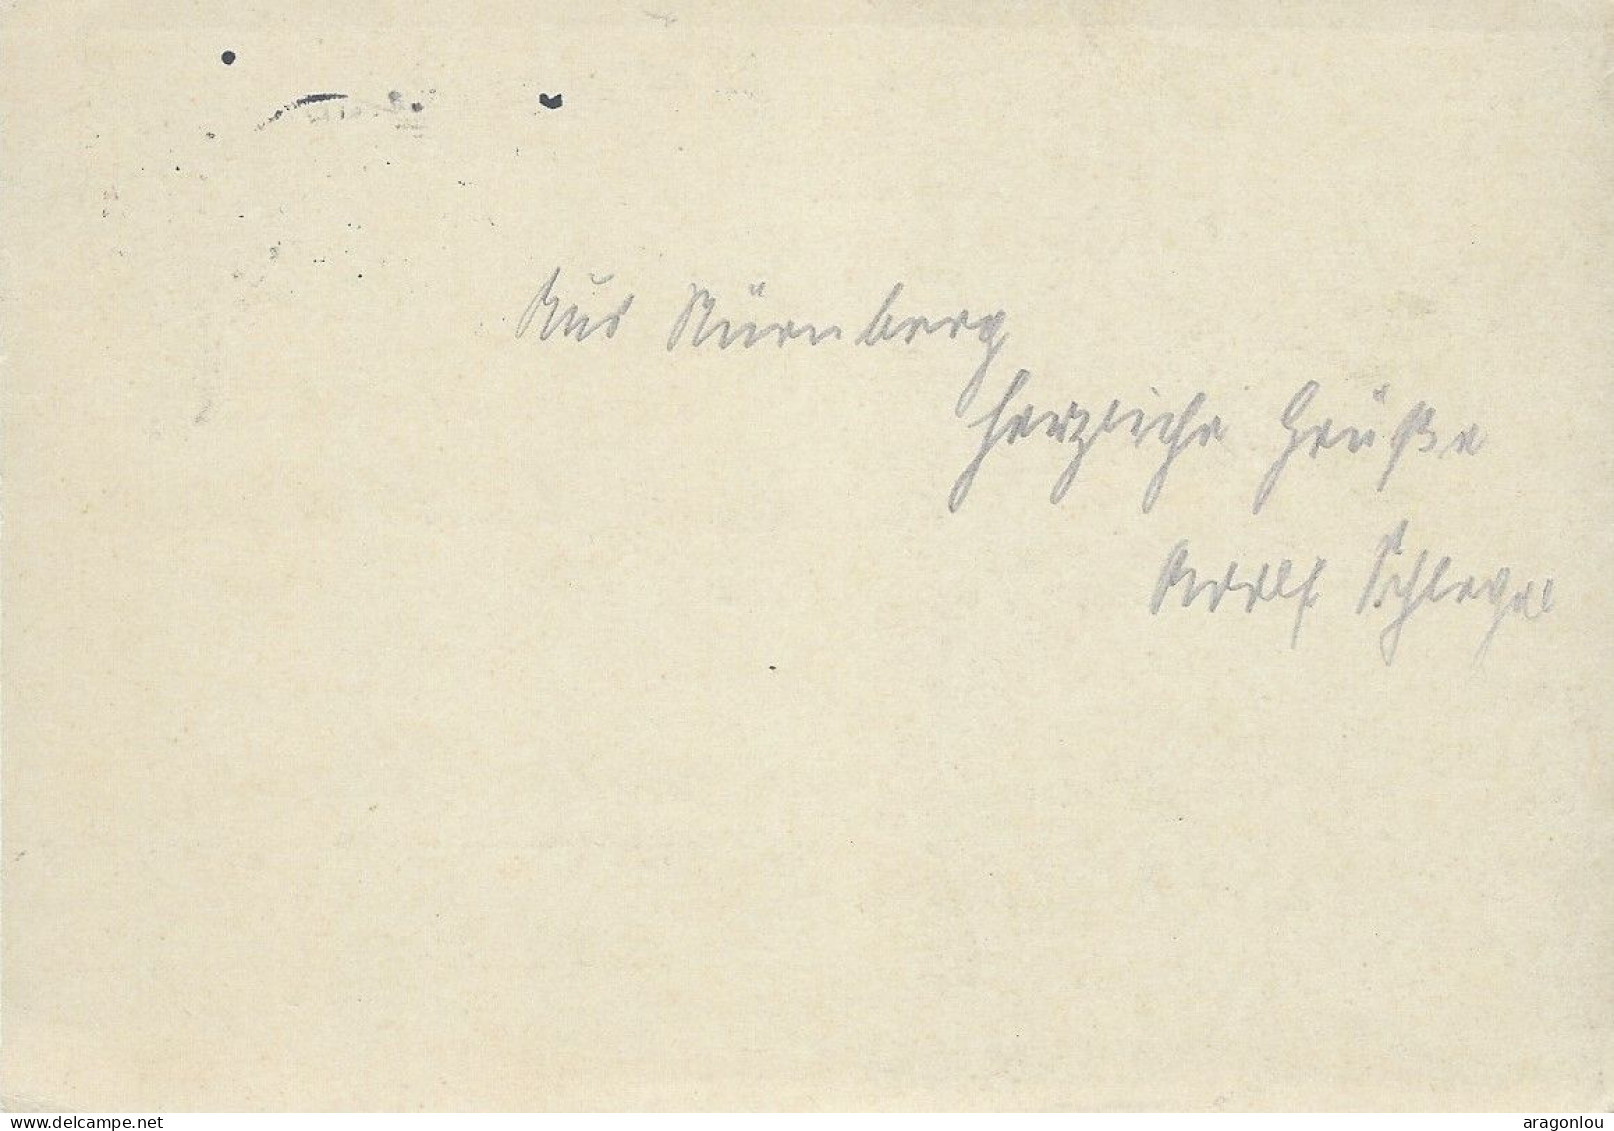 Aus Nürnberg
herzliche Grüße
Adolf Schlegel
www.delcampe.net
aragonlou